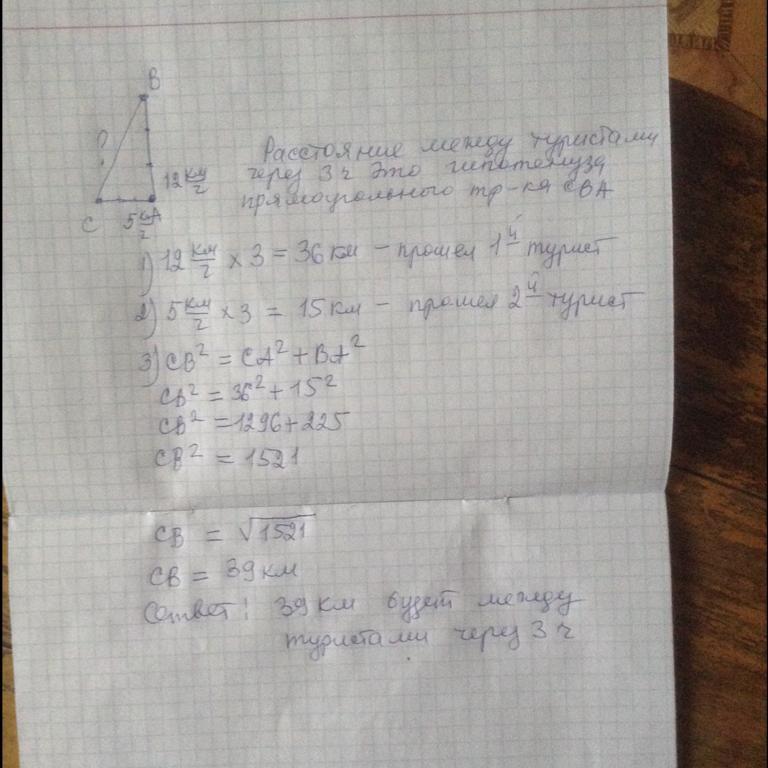 B
?
12 км/ч
C 5 км/ч A
Расстояние между туристами
через 3 ч это гипотенуза
прямоугольного тр-ка CBA
1) 12 км/ч × 3 = 36 км – прошел 1й турист
2) 5 км/ч × 3 = 15 км – прошел 2й турист
3) CB² = CA² + BA²
CB² = 36² + 15²
CB² = 1296 + 225
CB² = 1521
CB = √1521
CB = 39 км
Ответ: 39 км будет между
туристами через 3 ч